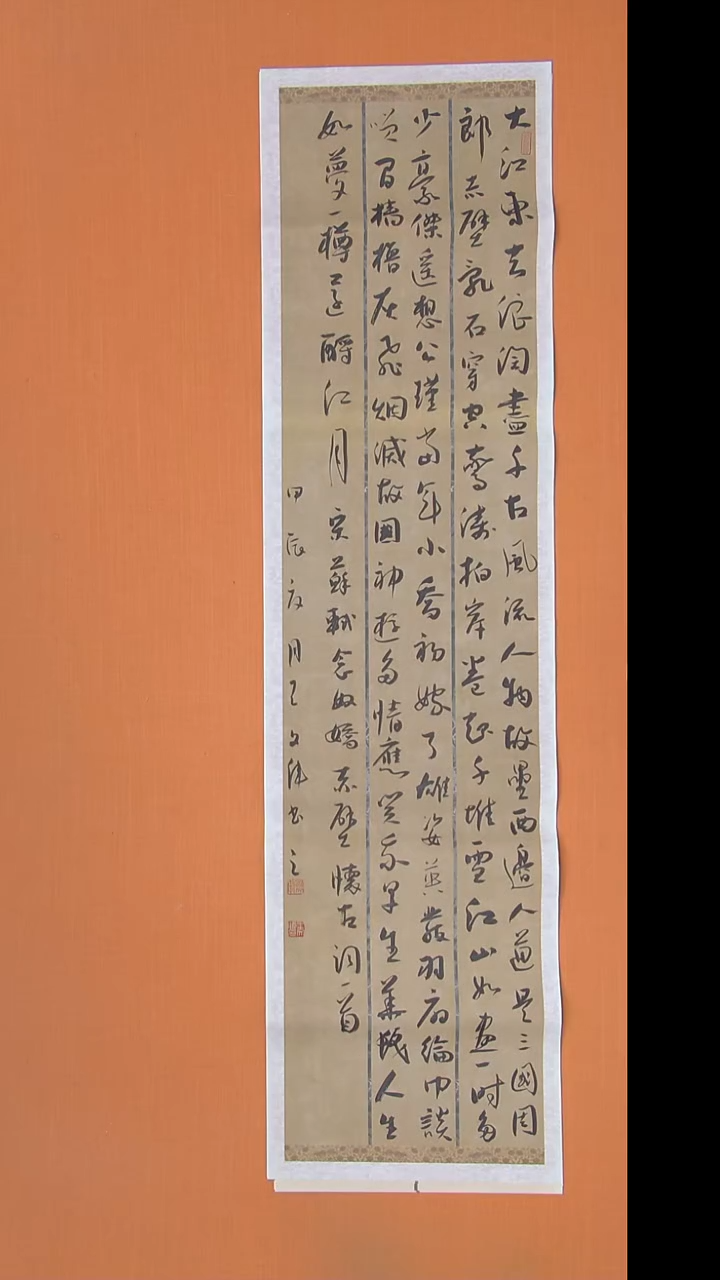 大江東去浪淘盡千古風流人物故壘西邊人道是三國周
郎赤壁亂石穿空驚濤拍岸卷起千堆雪江山如畫一時多
少豪傑遙想公瑾當年小喬初嫁了雄姿英發羽扇綸巾談
笑間檣櫓灰飛烟滅故國神遊多情應笑我早生華髮人生
如夢一樽還酹江月 宋蘇軾念奴嬌赤壁懷古詞一首
甲辰夏月王文書之